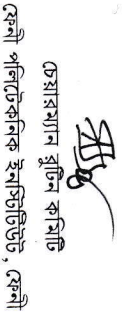 চেয়ারম্যান রুটিন কমিটি
ফেনী পলিটেকনিক ইনস্টিটিউট, ফেনী